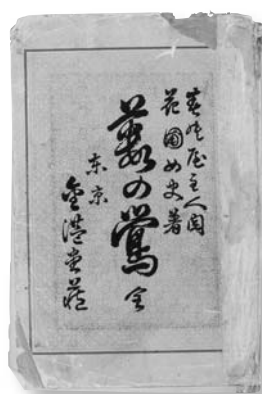 春のや主人閲
花圃女史著
藪の鶯 全
東京
金港堂蔵